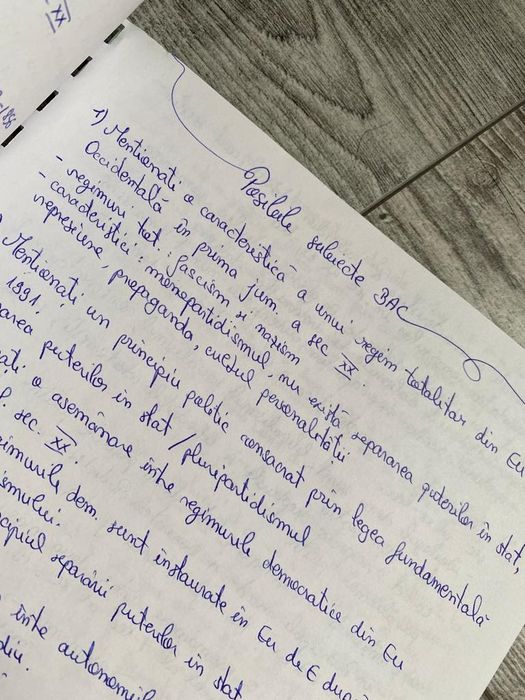 XX
Posibile subiecte BAC
1) Mentionați o caracteristică a unui regim totalitar din Eu
Occidentală în prima jum. a sec. XX.
- regimuri tot.: fascism și nazism
- caracteristici: monopartidismul, nu există separarea puterilor în stat,
represiune, propaganda, cultul personalității
Mentionați un principiu politic consacrat prin legea fundamentală
1991.
puterilor în stat / pluripartidismul
o asemănare între regimurile democratice din Eu
sec. XX.
dem. sunt instaurate în Eu de E
separării puterilor în stat
între